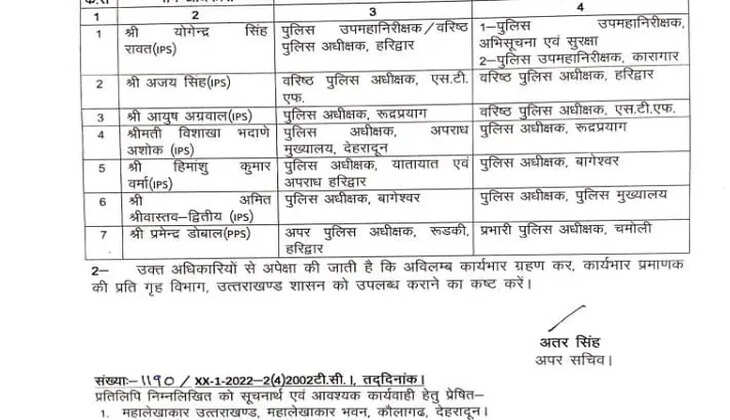 1 2 3 4
1 श्री योगेन्द्र सिंह पुलिस उपमहानिरीक्षक/वरिष्ठ 1–पुलिस उपमहानिरीक्षक,
रावत(IPS) पुलिस अधीक्षक, हरिद्वार अभिसूचना एवं सुरक्षा
2–पुलिस उपमहानिरीक्षक, कारागार
2 श्री अजय सिंह(IPS) वरिष्ठ पुलिस अधीक्षक, एस.टी. वरिष्ठ पुलिस अधीक्षक, हरिद्वार
एफ.
3 श्री आयुष अग्रवाल(IPS) पुलिस अधीक्षक, रूद्रप्रयाग वरिष्ठ पुलिस अधीक्षक, एस.टी.एफ.
4 श्रीमती विशाखा भदाणे पुलिस अधीक्षक, अपराध पुलिस अधीक्षक, रूद्रप्रयाग
अशोक (IPS) मुख्यालय, देहरादून
5 श्री हिमांशु कुमार पुलिस अधीक्षक, यातायात एवं पुलिस अधीक्षक, बागेश्वर
वर्मा(IPS) अपराध हरिद्वार
6 श्री अमित पुलिस अधीक्षक, बागेश्वर पुलिस अधीक्षक, पुलिस मुख्यालय
श्रीवास्तव–द्वितीय (IPS)
7 श्री प्रमेन्द्र डोबाल(PPS) अपर पुलिस अधीक्षक, रूडकी, प्रभारी पुलिस अधीक्षक, चमोली
हरिद्वार
2– उक्त अधिकारियों से अपेक्षा की जाती है कि अविलम्ब कार्यभार ग्रहण कर, कार्यभार प्रमाणक
की प्रति गृह विभाग, उत्तराखण्ड शासन को उपलब्ध कराने का कष्ट करें।
अतर सिंह
अपर सचिव।
संख्याः–1190/XX-1-2022–2(4)2002टी.सी.।, तद्दिनांक।
प्रतिलिपि निम्नलिखित को सूचनार्थ एवं आवश्यक कार्यवाही हेतु प्रेषित–
1. महालेखाकार उत्तराखण्ड, महालेखाकार भवन, कौलागढ, देहरादून।